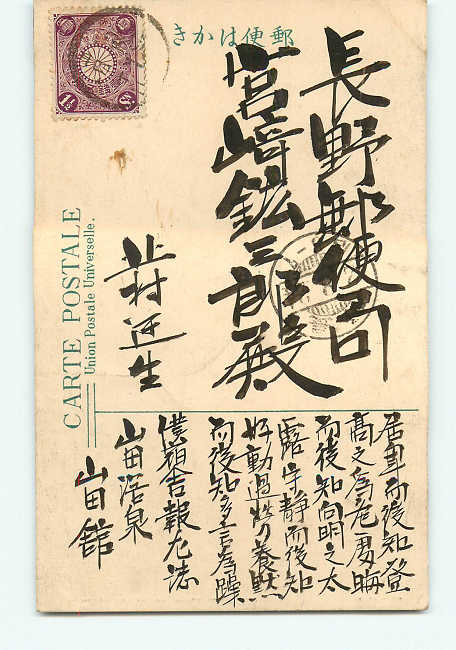 郵便はかき
1½ Sn.
長野郵便局
宮崎鉱三郎殿
村生
CARTE POSTALE
Union Postale Universelle.
居卑而後知登
高之為危處晦
而後知向明之太
露守静而後知
好動過養黙
而後知多言為躁
僕報左誌
山田温泉
山田館